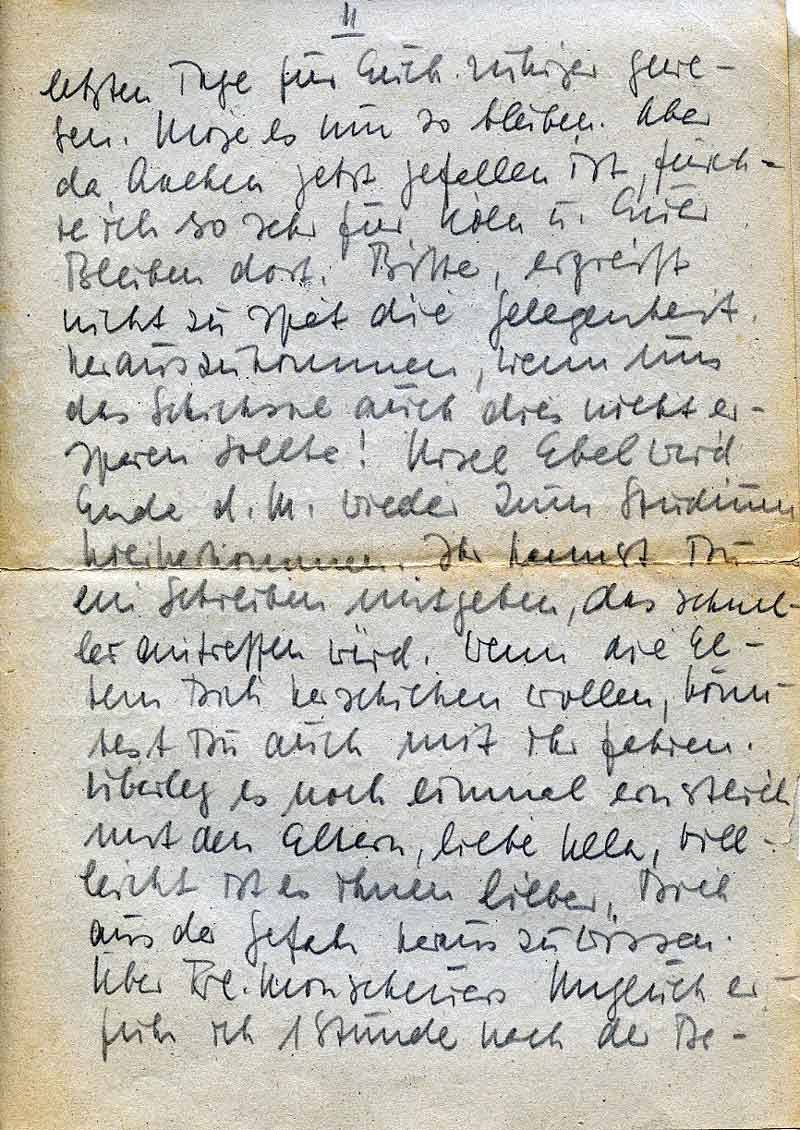 II
letzten Tage für Euch ruhiger gewe-
sen. Möge es nun so bleiben. Aber
da Aachen jetzt gefallen ist, fürch-
te ich so sehr für Köln u. Euer
Bleiben dort. Bitte, ergreift
nicht zu spät die Gelegenheit,
herauszukommen, wenn uns
das Schicksal auch dies nicht er-
sparen sollte! Ursel Ebel wird
Ende d. M. wieder zum Studium
kommen. Ihr kannst Du
ein Schreiben mitgeben, das schnel-
ler eintreffen wird. Wenn die El-
tern Dich herschicken wollen, könn-
test Du auch mit ihr fahren.
Überleg es noch einmal ernstlich
mit den Eltern, liebe Hella, viel-
leicht ist es ihnen lieber, Dich
aus der Gefahr heraus zu wissen.
Über Frl. Monscheuers Unglück er-
fuhr ich 1 Stunde nach der Be-